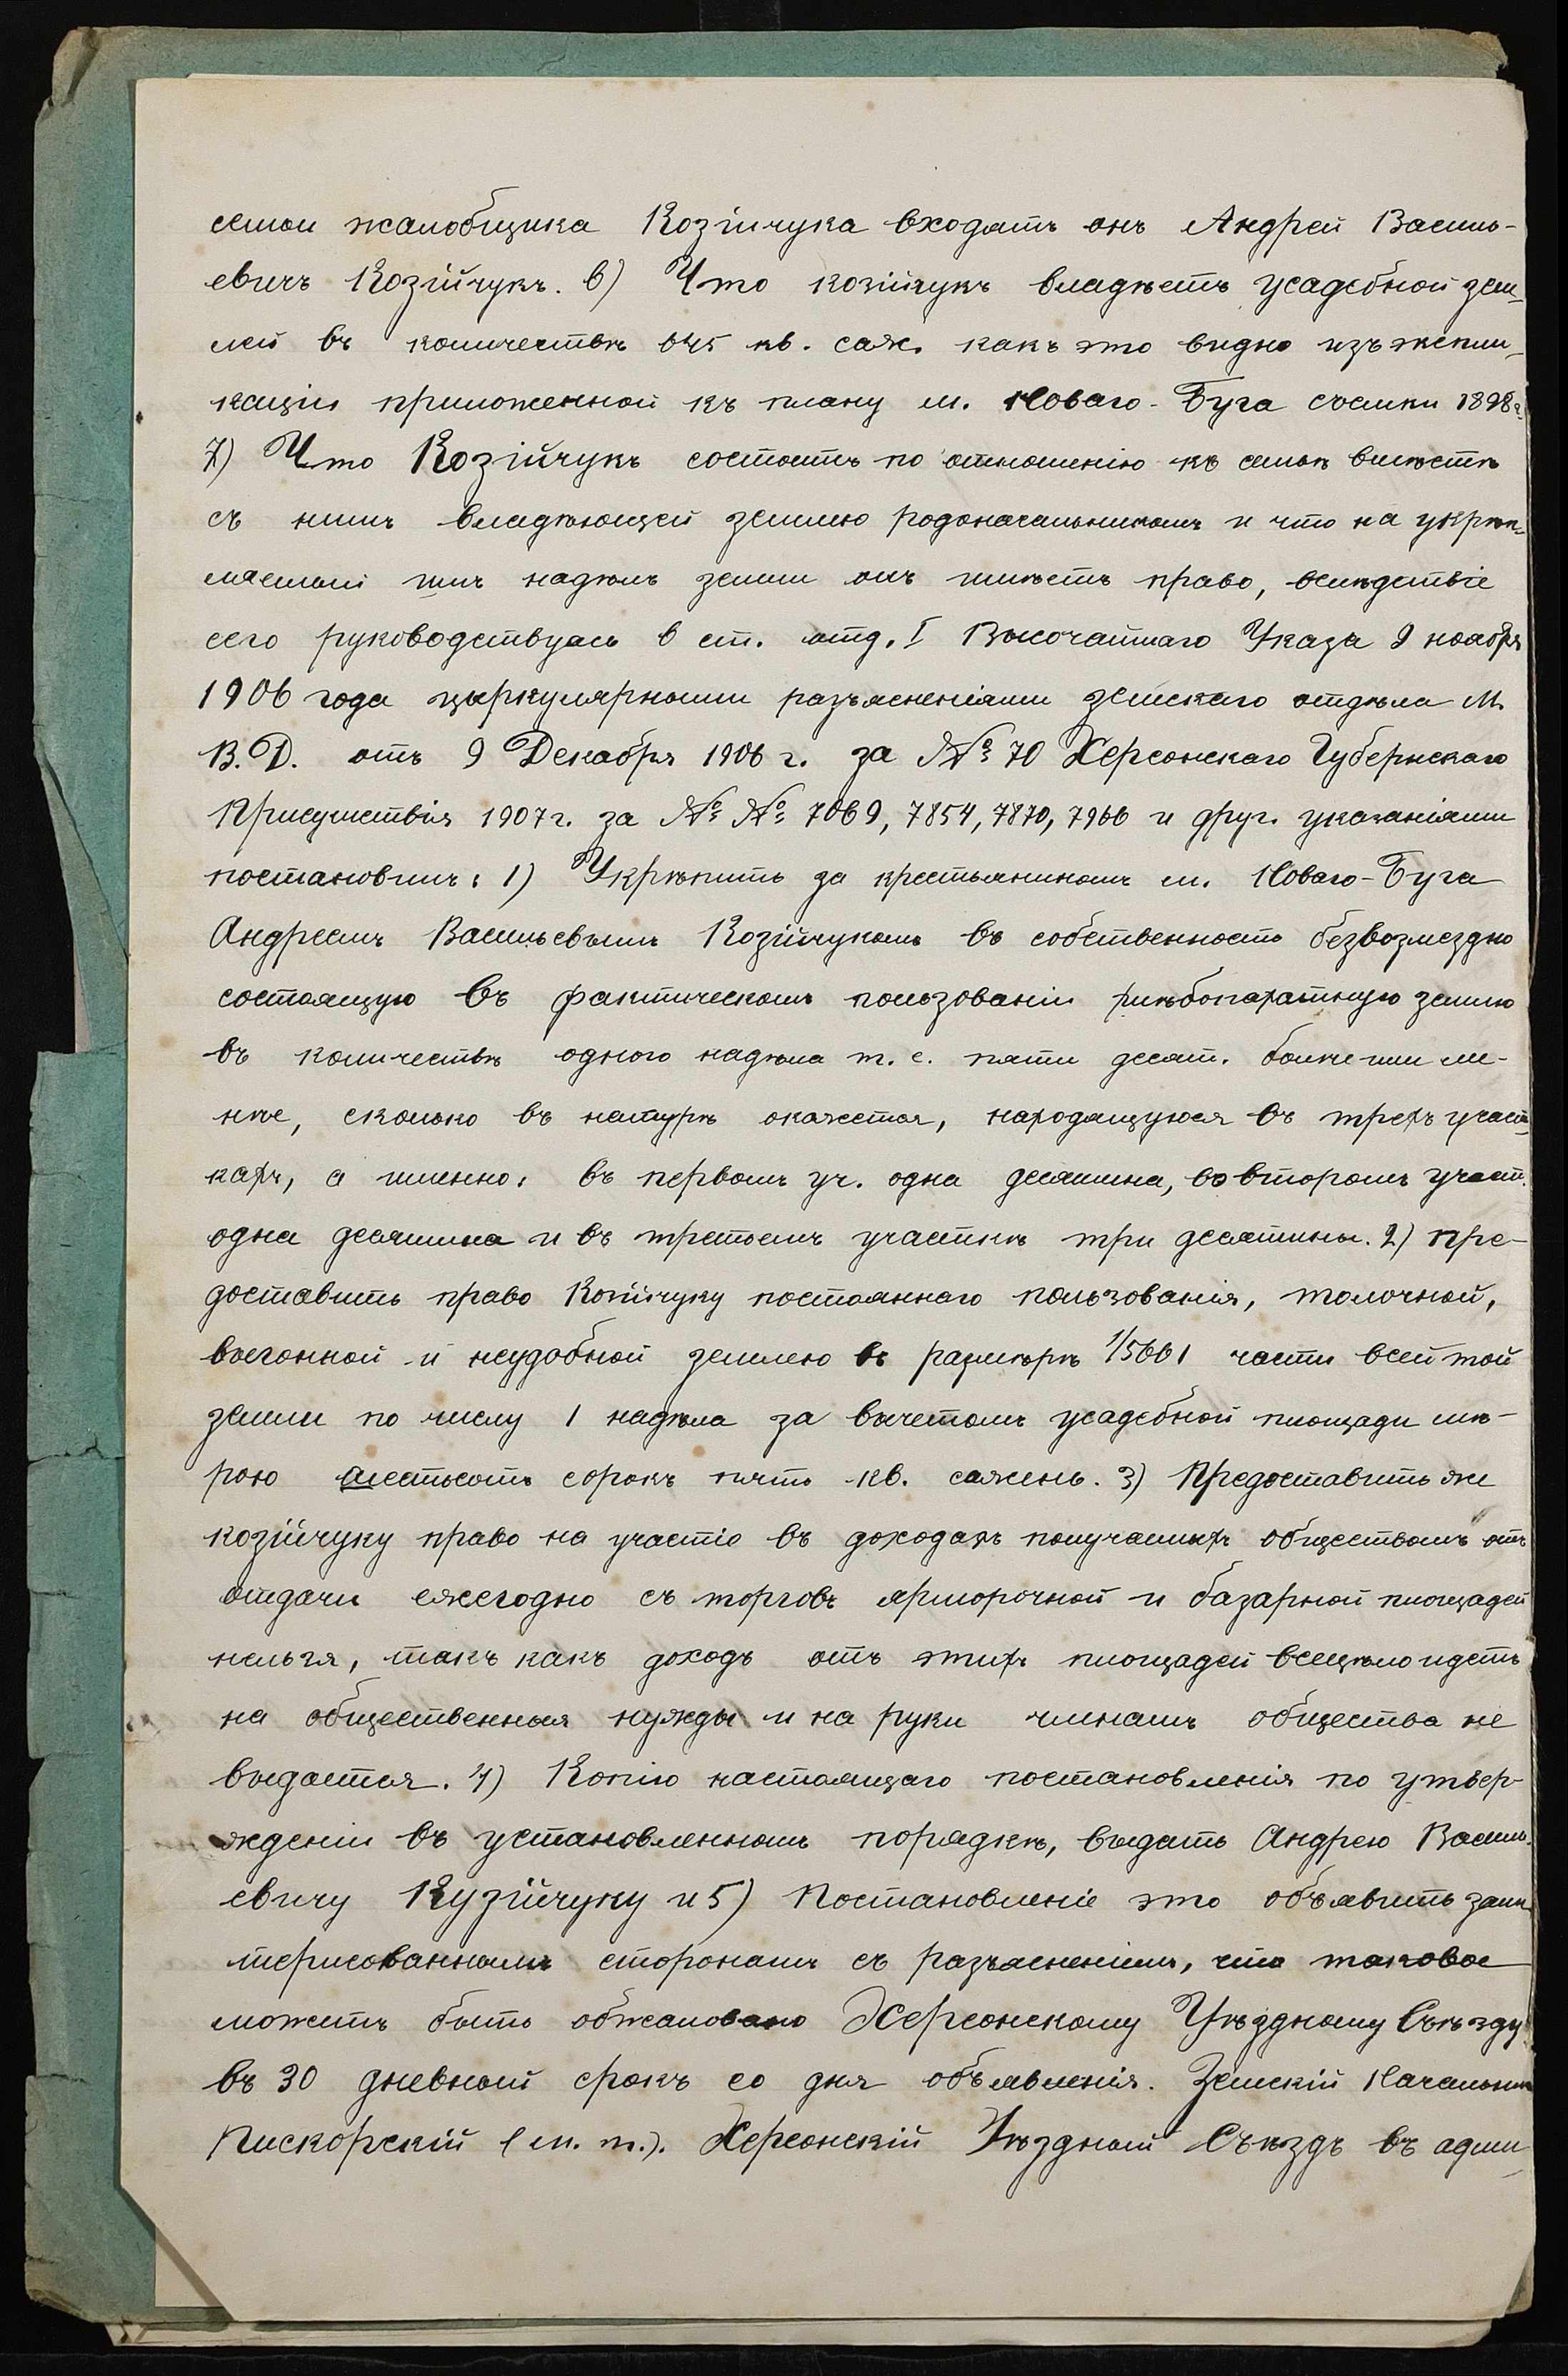 семьи жалобщика Козійчука входятъ онъ Андрей Василь-
евичъ Козійчукъ. 6) Что козійчукъ владѣетъ усадебной зем-
лей въ количествѣ 645 кв. саж. какъ это видно изъ экспли-
каціи приложенной къ плану м. Новаго-Буга съемки 1898 г.
7) Что Козійчукъ состоитъ по отношенію къ семьѣ вмѣстѣ
съ нимъ владѣющей землею родоначальникомъ и что на укрѣп-
ляемый имъ надѣлъ земли онъ имѣетъ право, вслѣдствіе
сего руководствуясь 6 ст. отд. I Высочайшаго Указа 9 ноября
1906 года циркулярными разъясненіями земскаго отдѣла М.
В. Д. отъ 9 Декабря 1906 г. за № 70 Херсонскаго Губернскаго
Присутствія 1907 г. за № № 7069, 7854, 7870, 7966 и друг. указаніями
постановилъ: 1) Укрѣпить за крестьяниномъ м. Новаго-Буга
Андреемъ Васильевымъ Козійчукомъ въ собственность безвозмездно
состоящую въ фактическомъ пользованіи хлѣбопахатную землю
въ количествѣ одного надѣла т. е. пяти десят. болѣе или ме-
нѣе, сколько въ натурѣ окажется, находящуюся въ трехъ участ-
кахъ, а именно: въ первомъ уч. одна десятина, во второмъ участ.
одна десятина и въ третьемъ участкѣ три десятины. 2) пре-
доставить право Козійчуку постояннаго пользованія, толочной,
выгонной и неудобной землею въ размѣрѣ 1/5661 части всей той
земли по числу 1 надѣла за вычетомъ усадебной площади мѣ-
рою шестьсотъ сорокъ пять кв. сажень. 3) Предоставить же
козійчуку право на участіе въ доходахъ получаемыхъ обществомъ отъ
отдачи ежегодно съ торговъ ярморочной и базарной площадей
нельзя, такъ какъ доходъ отъ этихъ площадей всецѣло идетъ
на общественныя нужды и на руки членамъ общества не
выдается. 4) Копію настоящаго постановленія по утвер-
жденіи въ установленномъ порядкѣ, выдать Андрею Василь-
евичу Кузійчуку и 5) Постановленіе это объявить заин-
терисованнымъ сторонамъ съ разъясненіемъ, что таковое
можетъ быть обжаловано Херсонскому Уѣздному Съѣзду
въ 30 дневный срокъ со дня объявленія. Земскій Начальникъ
Пискорскій (м. п.). Херсонскій Уѣздный Съѣздъ въ адми-